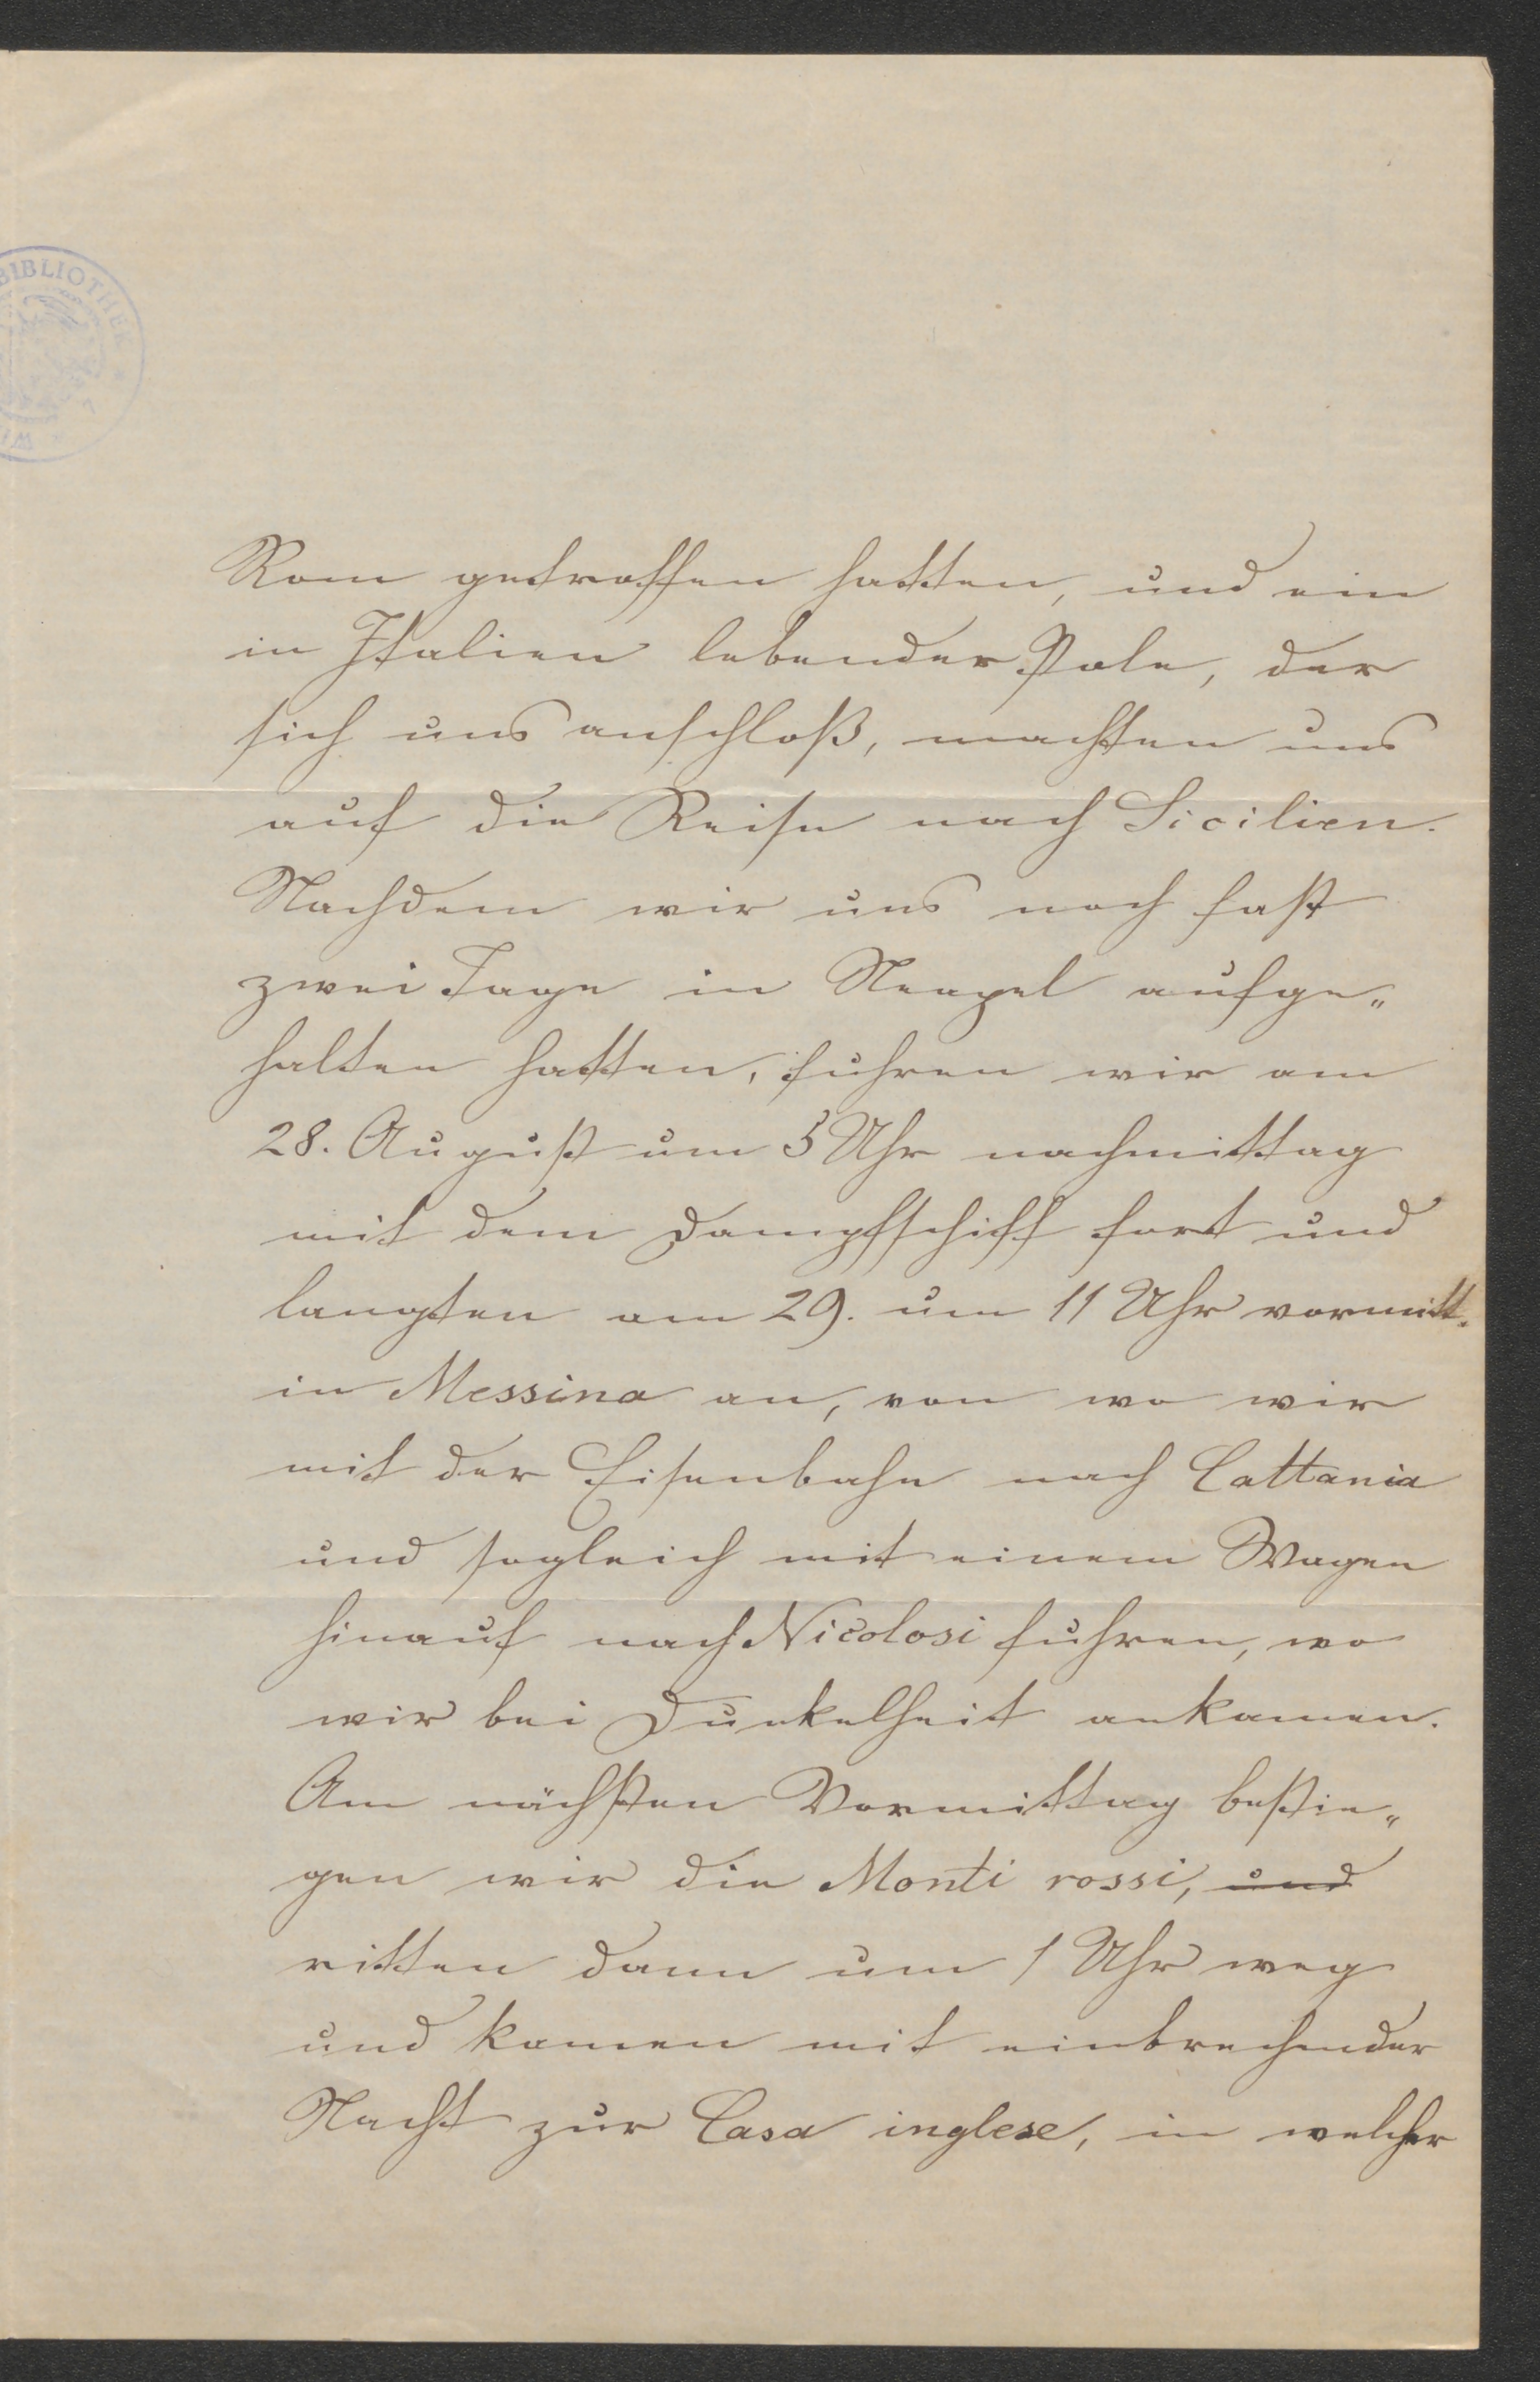 BIBLIOTHEK
WI
Rom getroffen hatten, und ein
in Italien lebender Pole, der
sich uns anschloß, machten uns
auf die Reise nach Sicilien.
Nachdem wir uns noch fast
zwei Tage in Neapel aufge„
halten hatten, fuhren wir am
28. August um 5 Uhr nachmittag
mit dem Dampfschiff fort und
langten am 29. um 11 Uhr vormitt.
in Messina an, von wo wir
mit der Eisenbahn nach Cattania
und sogleich mit einem Wagen
hinauf nach Nicolosi fuhren, wo
wir bei Dunkelheit ankamen.
Am nächsten Vormittag bestie„
gen wir die Monti rossi, und
ritten dann um 1 Uhr weg
und kamen mit einbrechender
Nacht zur Casa inglese, in welcher